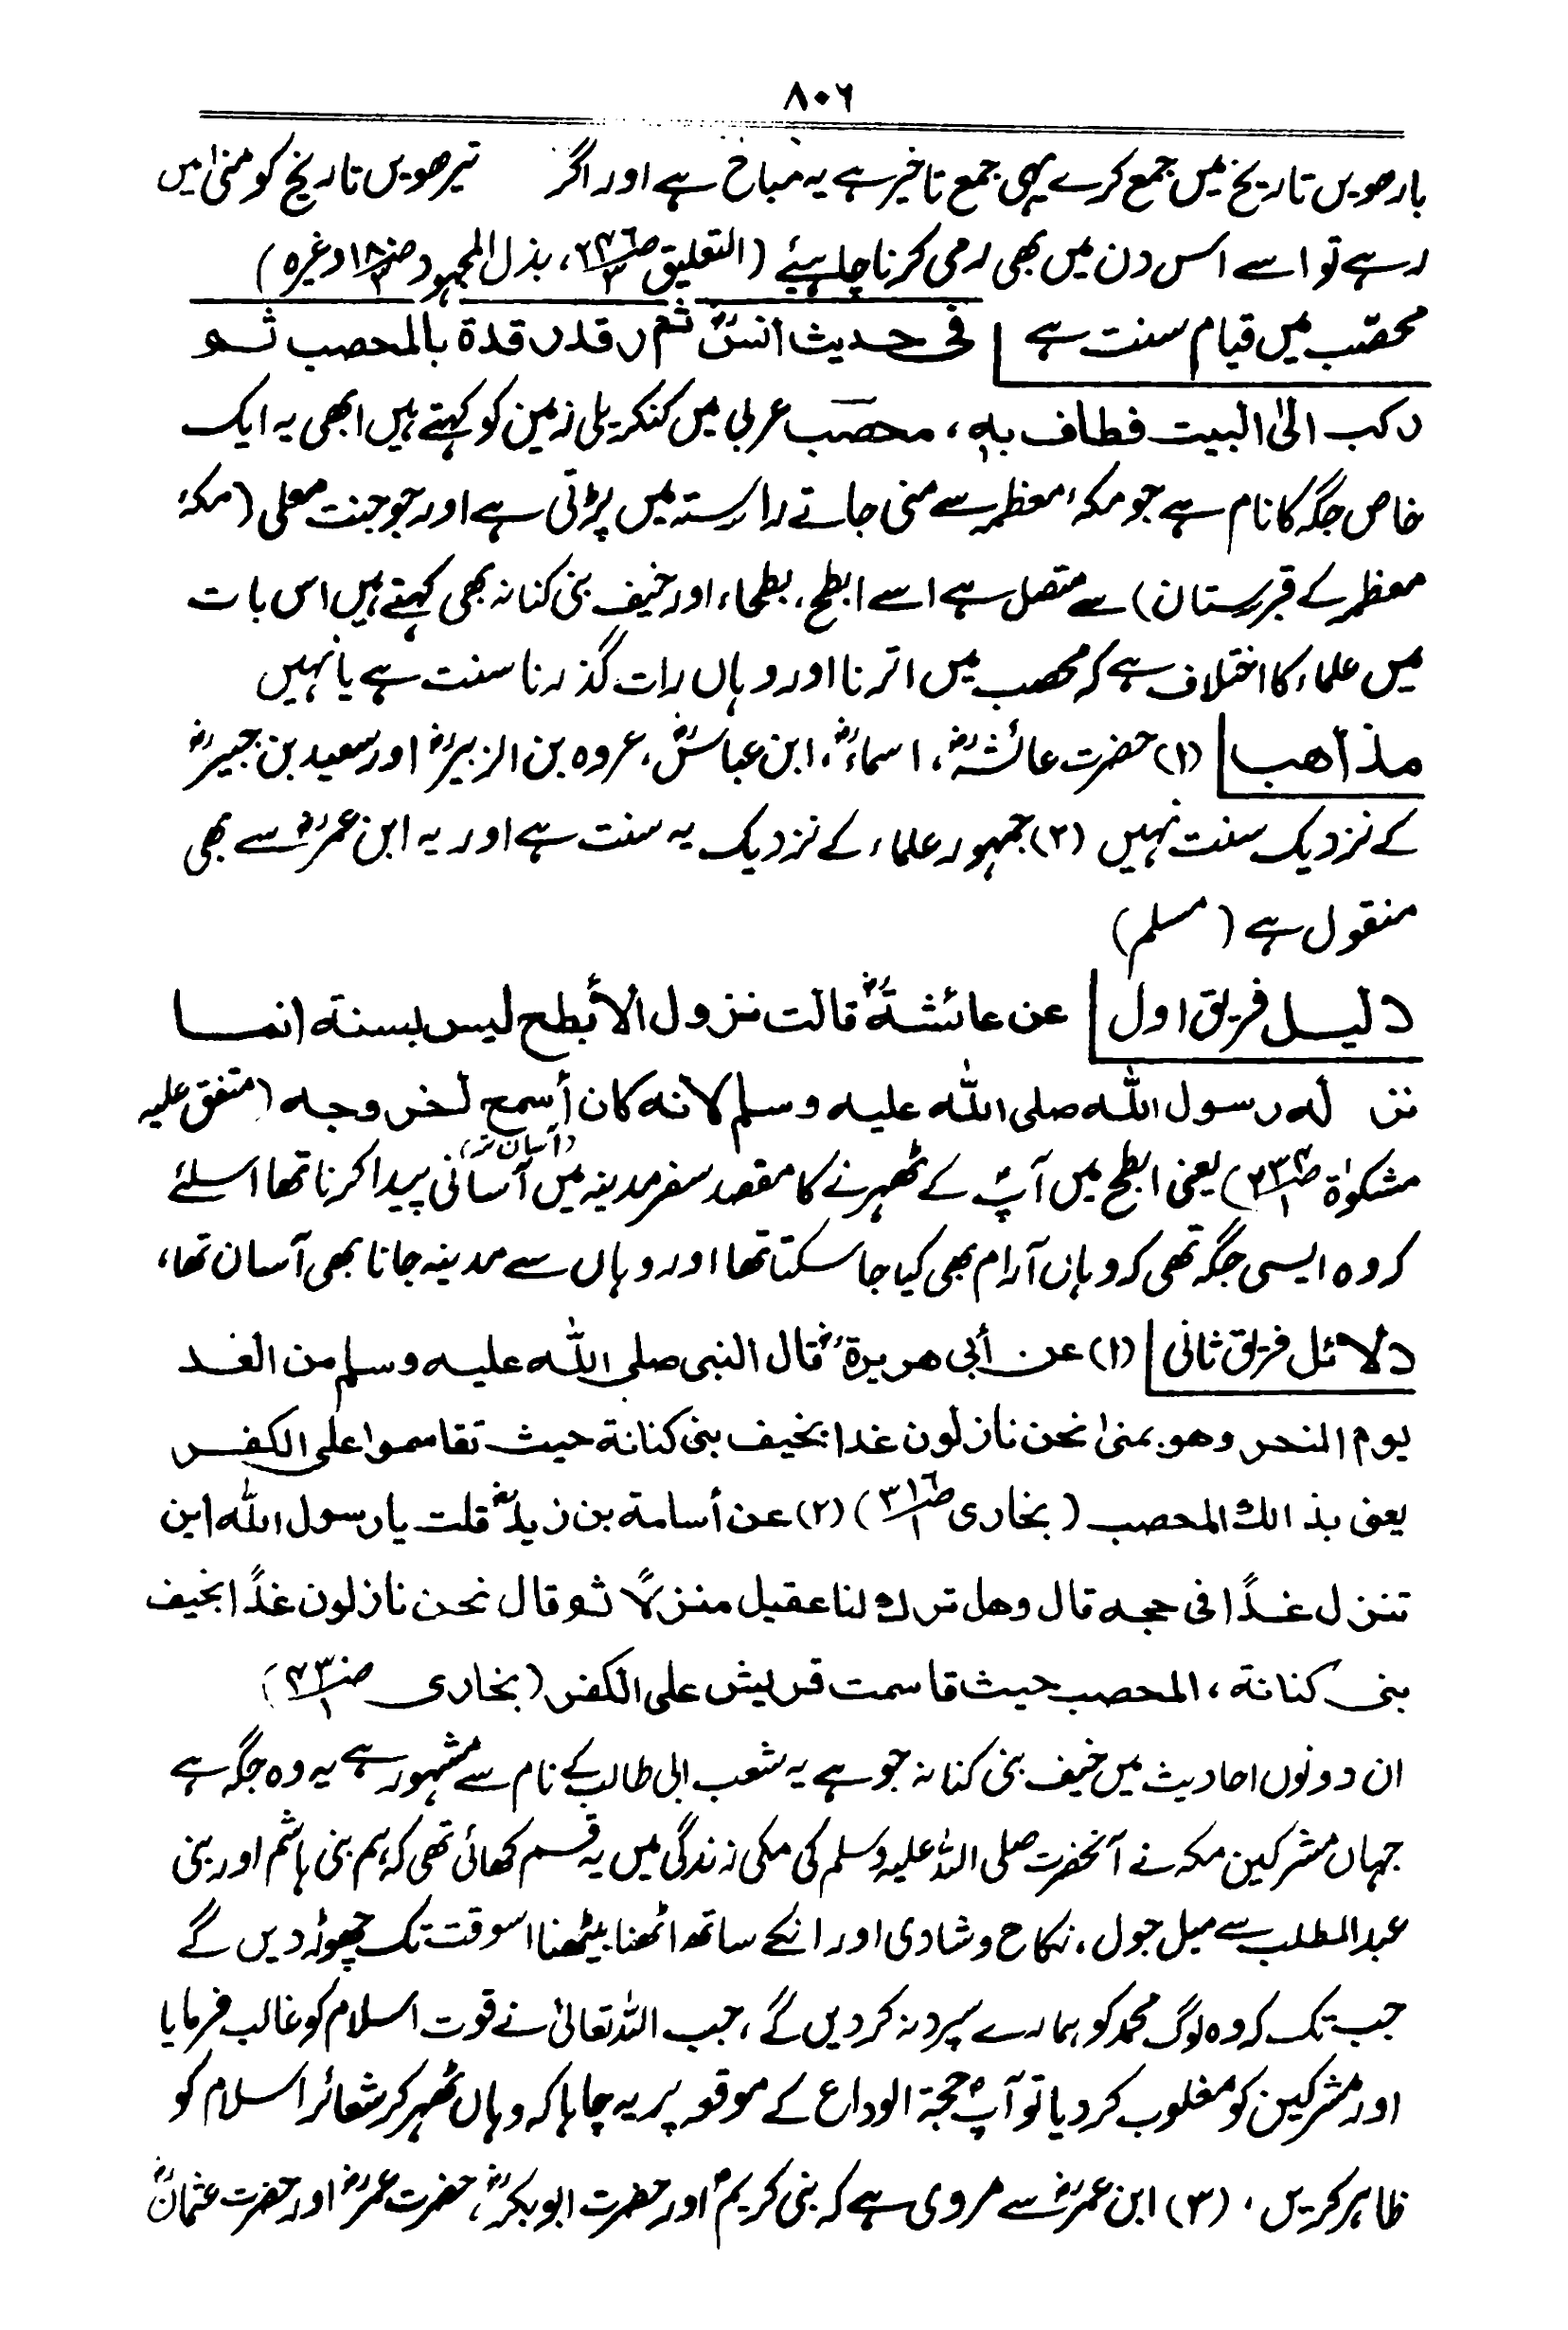 ٨٠٦
بارھویں تاریخ میں جمع کرے یہی جمع تاخیر ہے یہ مباح ہے اور اگر تیرھویں تاریخ کو منیٰ میں
رہے تو اسے اس دن میں بھی رمی کرنا چاہیئے (التعلیق ، بذل المجہود وغیرہ)
محصّب میں قیام سنت ہے فی حدیث انسؓ ثم رقد رقدة بالمحصب ثم
رکب الیٰ البیت فطاف بہٖ ، محصّب عربی میں کنکریلی زمین کو کہتے ہیں ابھی یہ ایک
خاص جگہ کا نام ہے جو مکۂ معظمہ سے منی جاتے راستہ میں پڑتی ہے اور جو جنت معلی (مکۂ
معظمہ کے قبرستان) سے متصل ہے اسے ابطح ، بطحاء اور خیف بنی کنانہ بھی کہتے ہیں اس بات
میں علماء کا اختلاف ہے کہ محصب میں اترنا اور وہاں رات گذرنا سنت ہے یا نہیں
مذاھب (۱) حضرت عائشہؓ ، اسماءؓ ، ابن عباسؓ ، عروہ بن الزبیرؓ اور سعید بن جبیرؓ
کے نزدیک سنت نہیں (۲) جمہور علماء کے نزدیک یہ سنت ہے اور یہ ابن عمرؓ سے بھی
منقول ہے (مسلم)
دلیل فریق اول عن عائشةؓ قالت نزول الأبطح لیس بسنة انما
نزلہ رسول اللہ صلی اللہ علیہ وسلم لانہ کان أسمح لخروجہ (متفق علیہ
(آسان تر)
مشکوٰة ) یعنی ابطح میں آپؐ کے ٹھہرنے کا مقصد سفر مدینہ میں آسانی پیدا کرنا تھا اسلئے
کہ وہ ایسی جگہ تھی کہ وہاں آرام بھی کیا جا سکتا تھا اور وہاں سے مدینہ جانا بھی آسان تھا،
دلائل فریق ثانی (۱) عن أبی ھریرةؓ قال النبی صلی اللہ علیہ وسلم من الغد
یوم النحر وھو بمنیٰ نحن نازلون غدا بخیف بنی کنانة حیث تقاسموا علی الکفر
یعنی بذالك المحصب (بخاری ) (۲) عن أسامة بن زیدؓ قلت یا رسول اللہ این
تنزل غدًا فی حجہ قال وھل ترك لنا عقیل منزلًا ثم قال نحن نازلون غدًا بخیف
بنی کنانة ، المحصب حیث قاسمت قریش علی الکفر (بخاری )
ان دونوں احادیث میں خیف بنی کنانہ جو ہے یہ شعب ابی طالب کے نام سے مشہور ہے یہ وہ جگہ ہے
جہاں مشرکین مکہ نے آنحضرت صلی اللہ علیہ وسلم کی مکی زندگی میں یہ قسم کھائی تھی کہ ہم بنی ہاشم اور بنی
عبدالمطلب سے میل جول ، نکاح و شادی اور انکے ساتھ اٹھنا بیٹھنا اسوقت تک چھوڑ دیں گے
جب تک کہ وہ لوگ محمد کو ہمارے سپرد نہ کردیں گے ، جب اللہ تعالیٰ نے قوت اسلام کو غالب فرمایا
اور مشرکین کو مغلوب کردیا تو آپؐ حجۃ الوداع کے موقعہ پر یہ چاہا کہ وہاں ٹھہر کر شعائر اسلام کو
ظاہر کریں ، (۳) ابن عمرؓ سے مروی ہے کہ نبی کریمؐ اور حضرت ابوبکرؓ ، حضرت عمرؓ اور حضرت عثمانؓ